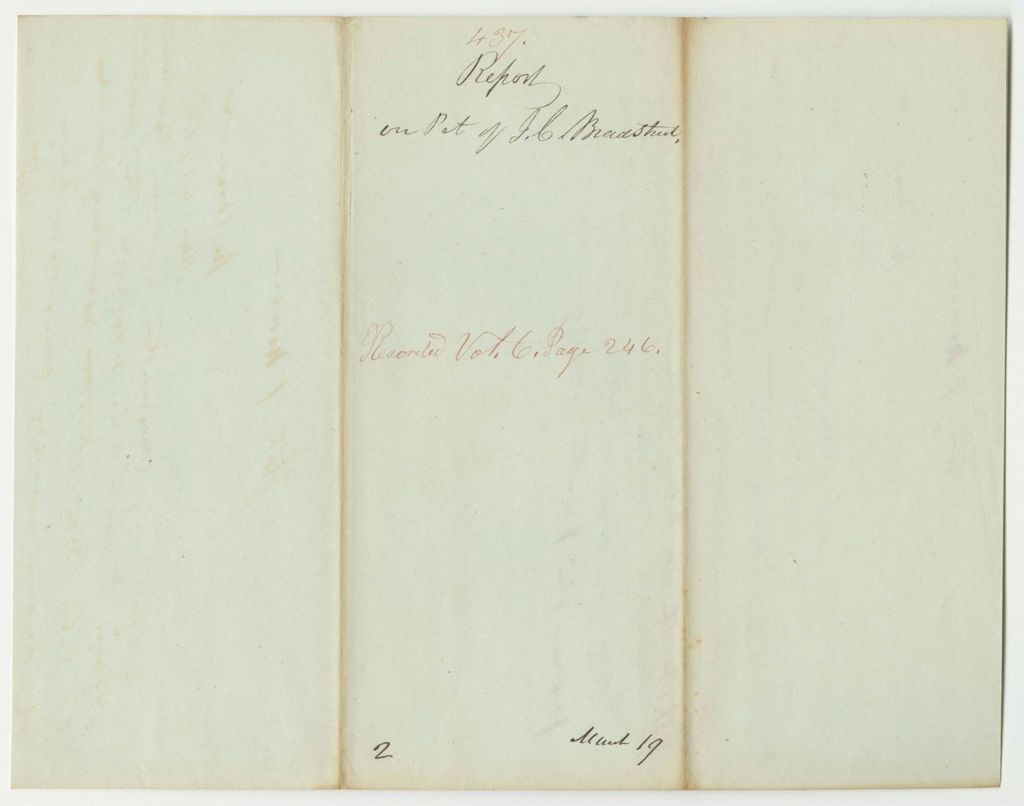 437.
Report
on Pet of J. C. Bradstreet,
Recorded Vol. 6. Page 246.
2
March 19